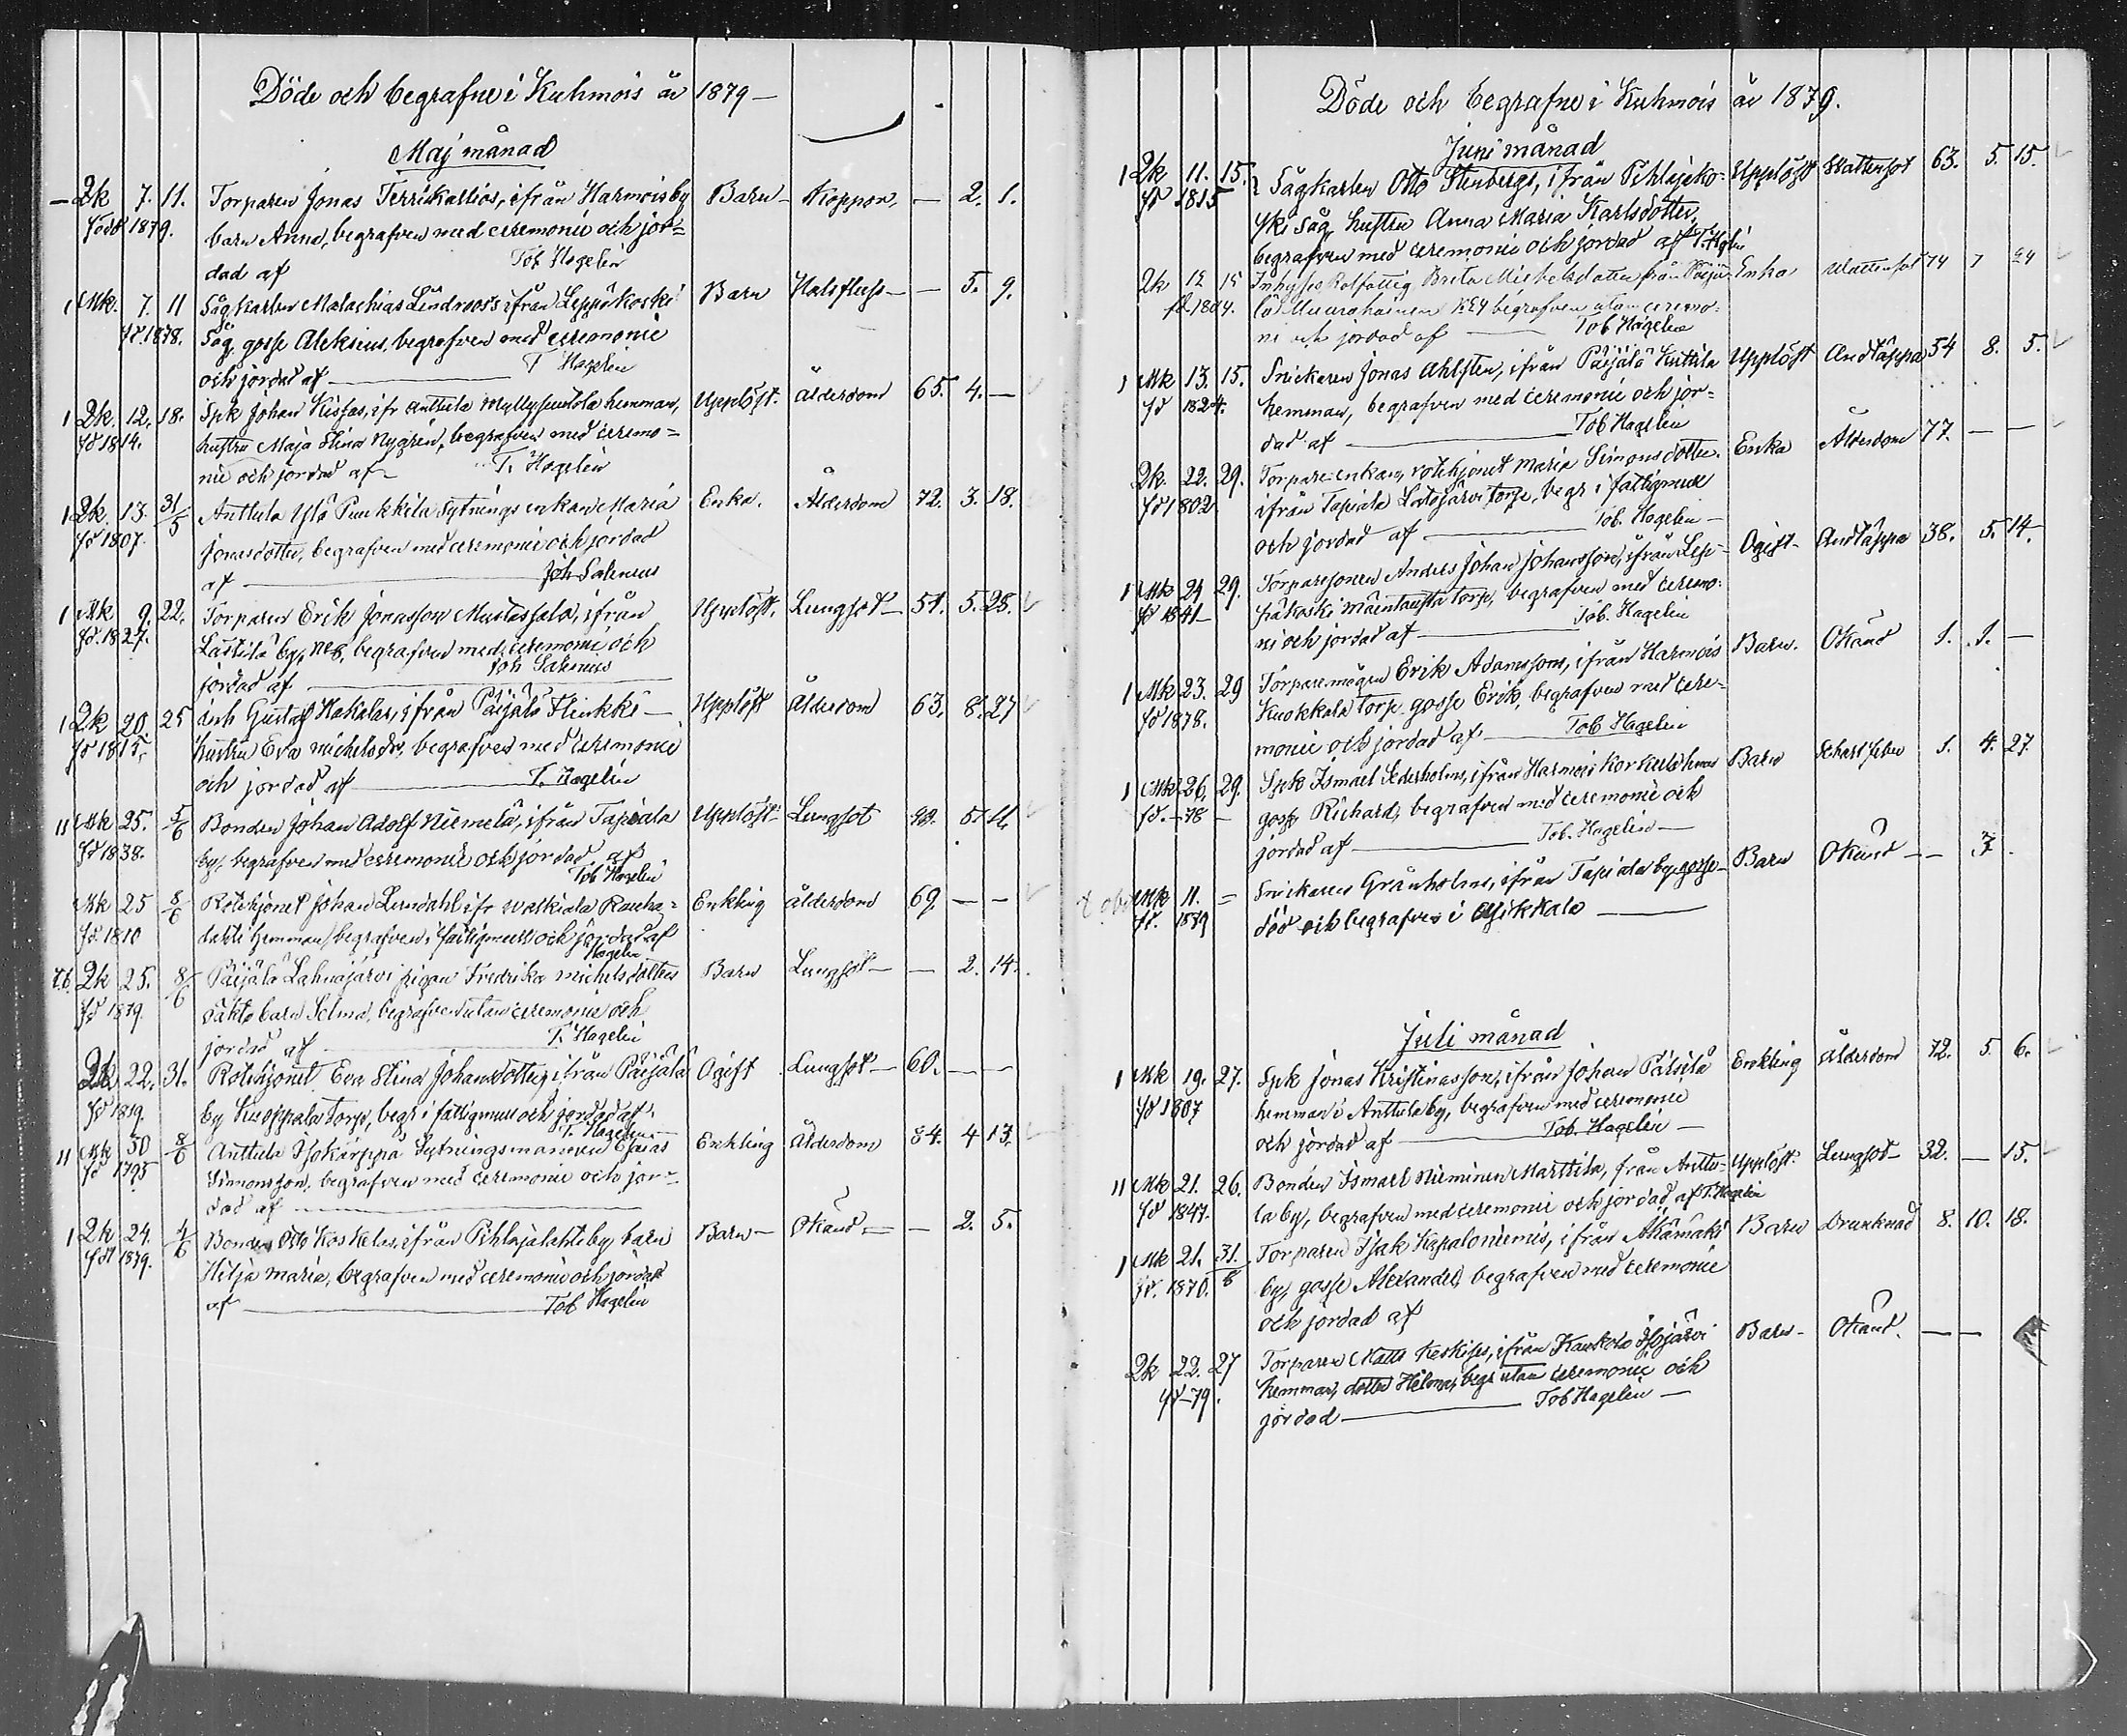 Döde och begrafne i Kuhmois år 1879 —
Maj månad
— Qk 7. 11. Torparen Jonas Terrikallios, ifrån Harmois by Barn — Koppor, — 2. 1.
född 1879. barn Anna, begrafven med ceremonie och jor=
dad af Tob Hagelin
1 Mk. 7. 11 Sågkarlen Malachias Lindroos's ifrån Leppäkoski Barn Halsfluss — — 5. 9.
fd. 1878. Såg, gosse Aleksius, begrafven med ceremonie
och jordad af — T Hagelin
1 Qk. 12. 18. Spk Johan Kisfas, ifr Anttula Myllysuntola hemman, Upplöst. Ålderdom 65. 4. —
fd 1814. hustru Maja Stina Nygrén, begrafven med ceremo=
nie och jordad af — T. Hagelin
1 Qk. 13. 31/5 Anttula Ylä Puukkila Sytnings enkan Maria Enka. Ålderdom 72. 3. 18.
fd 1807. Jonasdotter, begrafven med ceremonie och jordad
af — Joh Salenius
1 Mk 9. 22. Torparen Erik Jonasson Mustassalo, ifrån Upplöst. Lungsot — 51. 5. 28.
fd. 1827. Lästilä by, N:o 8, begrafven med ceremonie och
jordad af Joh Salenius
1 Qk 20. 25 Inh Gustaf Hakalas, ifrån Päijälä Hinkki — Upplöst Ålderdom 63. 8. 27
fd 1815. hustru Eva Michelsdr, begrafven med ceremonie
och jordad af — T. Hagelin
11 Mk 25. 5/6 Bonden Johan Adolf Niemelä, ifrån Tapiala Upplöst Lungsot 40. 5. 11.
fd 1838. by, begrafven med ceremonie och jordad af
Tob Hagelin
Mk 25 8/6 Rotehjonet Johan Lundahl ifr Walkiala Rauha= Enkling Ålderdom 69 — —
fd. 1810 lahti hemman, begrafven i fattigmull och jordad af
Hagelin
Qk 25. 8/6 Päijälä Lahnajärvi pigan Fredrika Michelsdotters Barn Lungsot — — 2. 14.
fd 1879. oäkta barn Selma, begrafven utan ceremonie och
jordad af — T. Hagelin
Qk 22. 31. Rotehjonet Eva Stina Johansdotter, ifrån Päijälä Ogift Lungsot — 60. — —
fd 1819. by Kuoppala torp, begr i fattigmull och jordad af
T. Hagelin —
11 Mk 30 8/6 Anttula Isokärppä Sytningsmannen Esaias Enkling Ålderdom 84. 4 13.
fd 1795 Simonsson, begrafven med ceremonie och jor=
dad af —
1 Qk 24. 4/6 Bonden Otto Koskelas, ifrån Pihlajalahti by barn Barn — Okänd — — 2. 5.
född 1879. Hilja Maria, begrafven med ceremonie och jordad
af — Tob Hagelin
Döde och begrafne i Kuhmois år 1879.
Juni månad
1 Qk 11. 15. Sågkarlen Otto Stenbergs, ifrån Pihlajako= Upplöst Wattensot 63. 5. 15.
fd 1815 ski såg hustru Anna Maria Karlsdotter,
begrafven med ceremonie och jordad af T. Hgln
Qk 12 15 Inhyses Rotfattig Brita Michelsdotter från Päijä= Enka Wattensot 74 7 24
fd. 1804. lä Muurahainen begrafven utan ceremo=
ni och jordad af — Tob Hagelin
1 Mk 13. 15. Snickaren Jonas Ahlsten, ifrån Päijälä Kuttila Upplöst Andtäppa 54 8. 5.
fd 1824. hemman, begrafven med ceremonie och jor=
dad af — Tob Hagelin
Qk. 22. 29. Torpare enkan, rotehjonet Maria Simonsdotter. Enka Ålderdom 77. — —
fd 1802. ifrån Tapiala Latojärvi torp, begr i fattigmull
och jordad af — Tob. Hagelin —
1 Mk 24 29. Torparesonen Anders Johan Johansson, ifrån Lep= Ogift — Andtäppa 38. 5. 14.
fd 1841 — päkoski Mäentausta torp, begrafven med ceremo=
ni och jordad af — Tob. Hagelin
1 Mk 23. 29 Torparemågen Erik Adamssons, ifrån Harmois Barn. Okänd 1. 1. —
fd 1878. Kuokkala torp. gosse Erik, begrafven med cere=
monie och jordad af — Tob Hagelin
1 Mk 26. 29. Spk Ismael Sederholms, ifrån Harmois Korkula hem Barn Scharl. feber 1. 4. 27.
fd. — 78 — gosse Richard, begrafven med ceremonie och
jordad af — Tob. Hagelin —
Mk 11. = Snickaren Gränholms, ifrån Tapiala by gosse — Barn Okänd — — 3.
fd. 1879 död och begrafven i Asikkala —
Juli månad
1 Mk 19. 27. Spk Jonas Kristinasson, ifrån Johan Pätsilä Enkling Ålderdom 72. 5. 6.
fd 1807 hemman i Anttula by, begrafven med ceremonie
och jordad af — Tob. Hagelin —
11 Mk 21. 26. Bonden Ismael Nieminen Marttila, från Anttu= Upplöst. Lungsot — 32. — 15.
fd 1847. la by, begrafven med ceremonie och jordad af T. Hagelin
1 Mk 21. 31. Torparen Isak Kapaloniemis, ifrån Akämäki Barn Drunknad 8. 10. 18.
fd. 1870. by, gosse Alexander, begrafven med ceremonie
och jordad af
Qk 22. 27 Torparen Matts Keskises, ifrån Kaukola Isojärvi Barn — Okänd. — —
fd — 79. hemman, dotter Hilma, begr utan ceremonie och
jordad — Tob Hagelin —